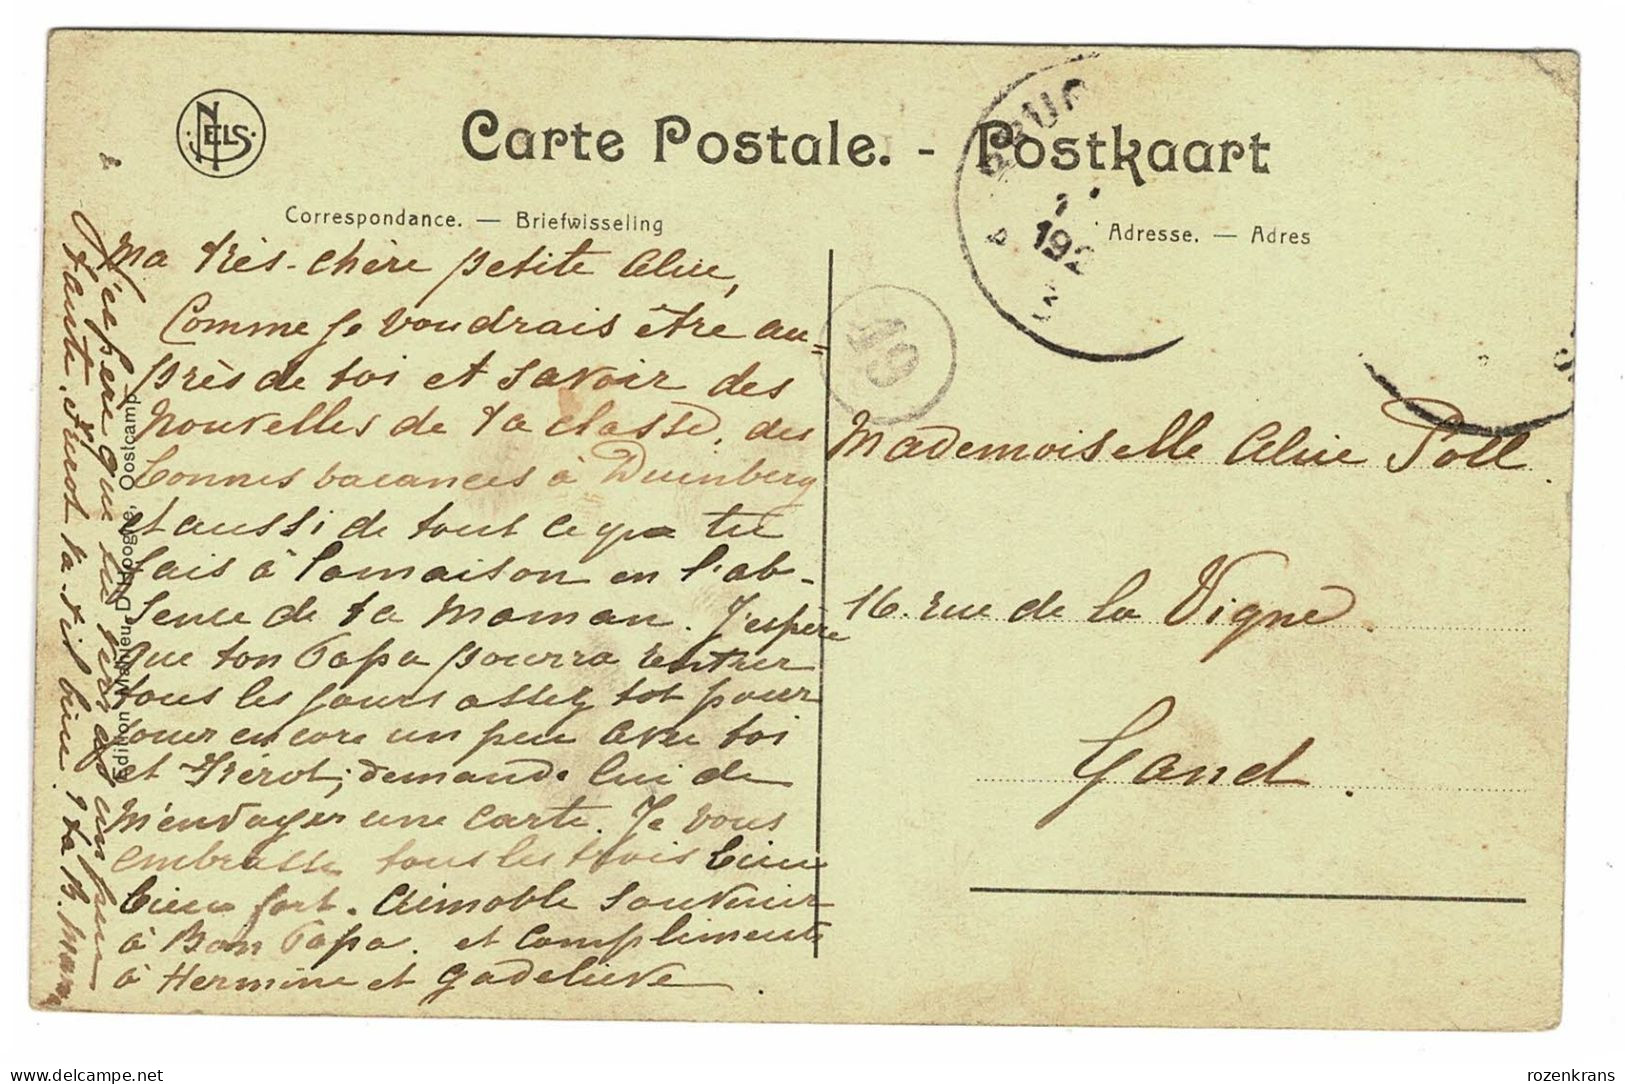 NELS
Carte Postale. - Postkaart
Correspondance. — Briefwisseling
Adresse. — Adres
BRUG
192
49
Ma très-chère petite Aline,
Comme je voudrais être au=
près de toi et savoir des
nouvelles de ta classe, des
bonnes vacances à Duinberg
et aussi de tout ce que tu
fais à la maison en l'ab-
sence de ta maman. J'espère
que ton Papa pourra rentrer
tous les jours assez tot pour
jouer encore un peu avec toi
et Frérot; demande lui de
m'envoyer une carte. Je vous
embrasse tous les trois bien
bien fort. Aimable souvenir
à Bon Papa. et compliments
à Hermine et Godelieve.
J'espère que
un peu
tante, Frérot
bien
ta B. Mama
Edition Mahieu-D'Hooghe, Oostcamp
Mademoiselle Aline Poll
16. rue de la Vigne.
Gand.
rozenkrans
delcampe.net